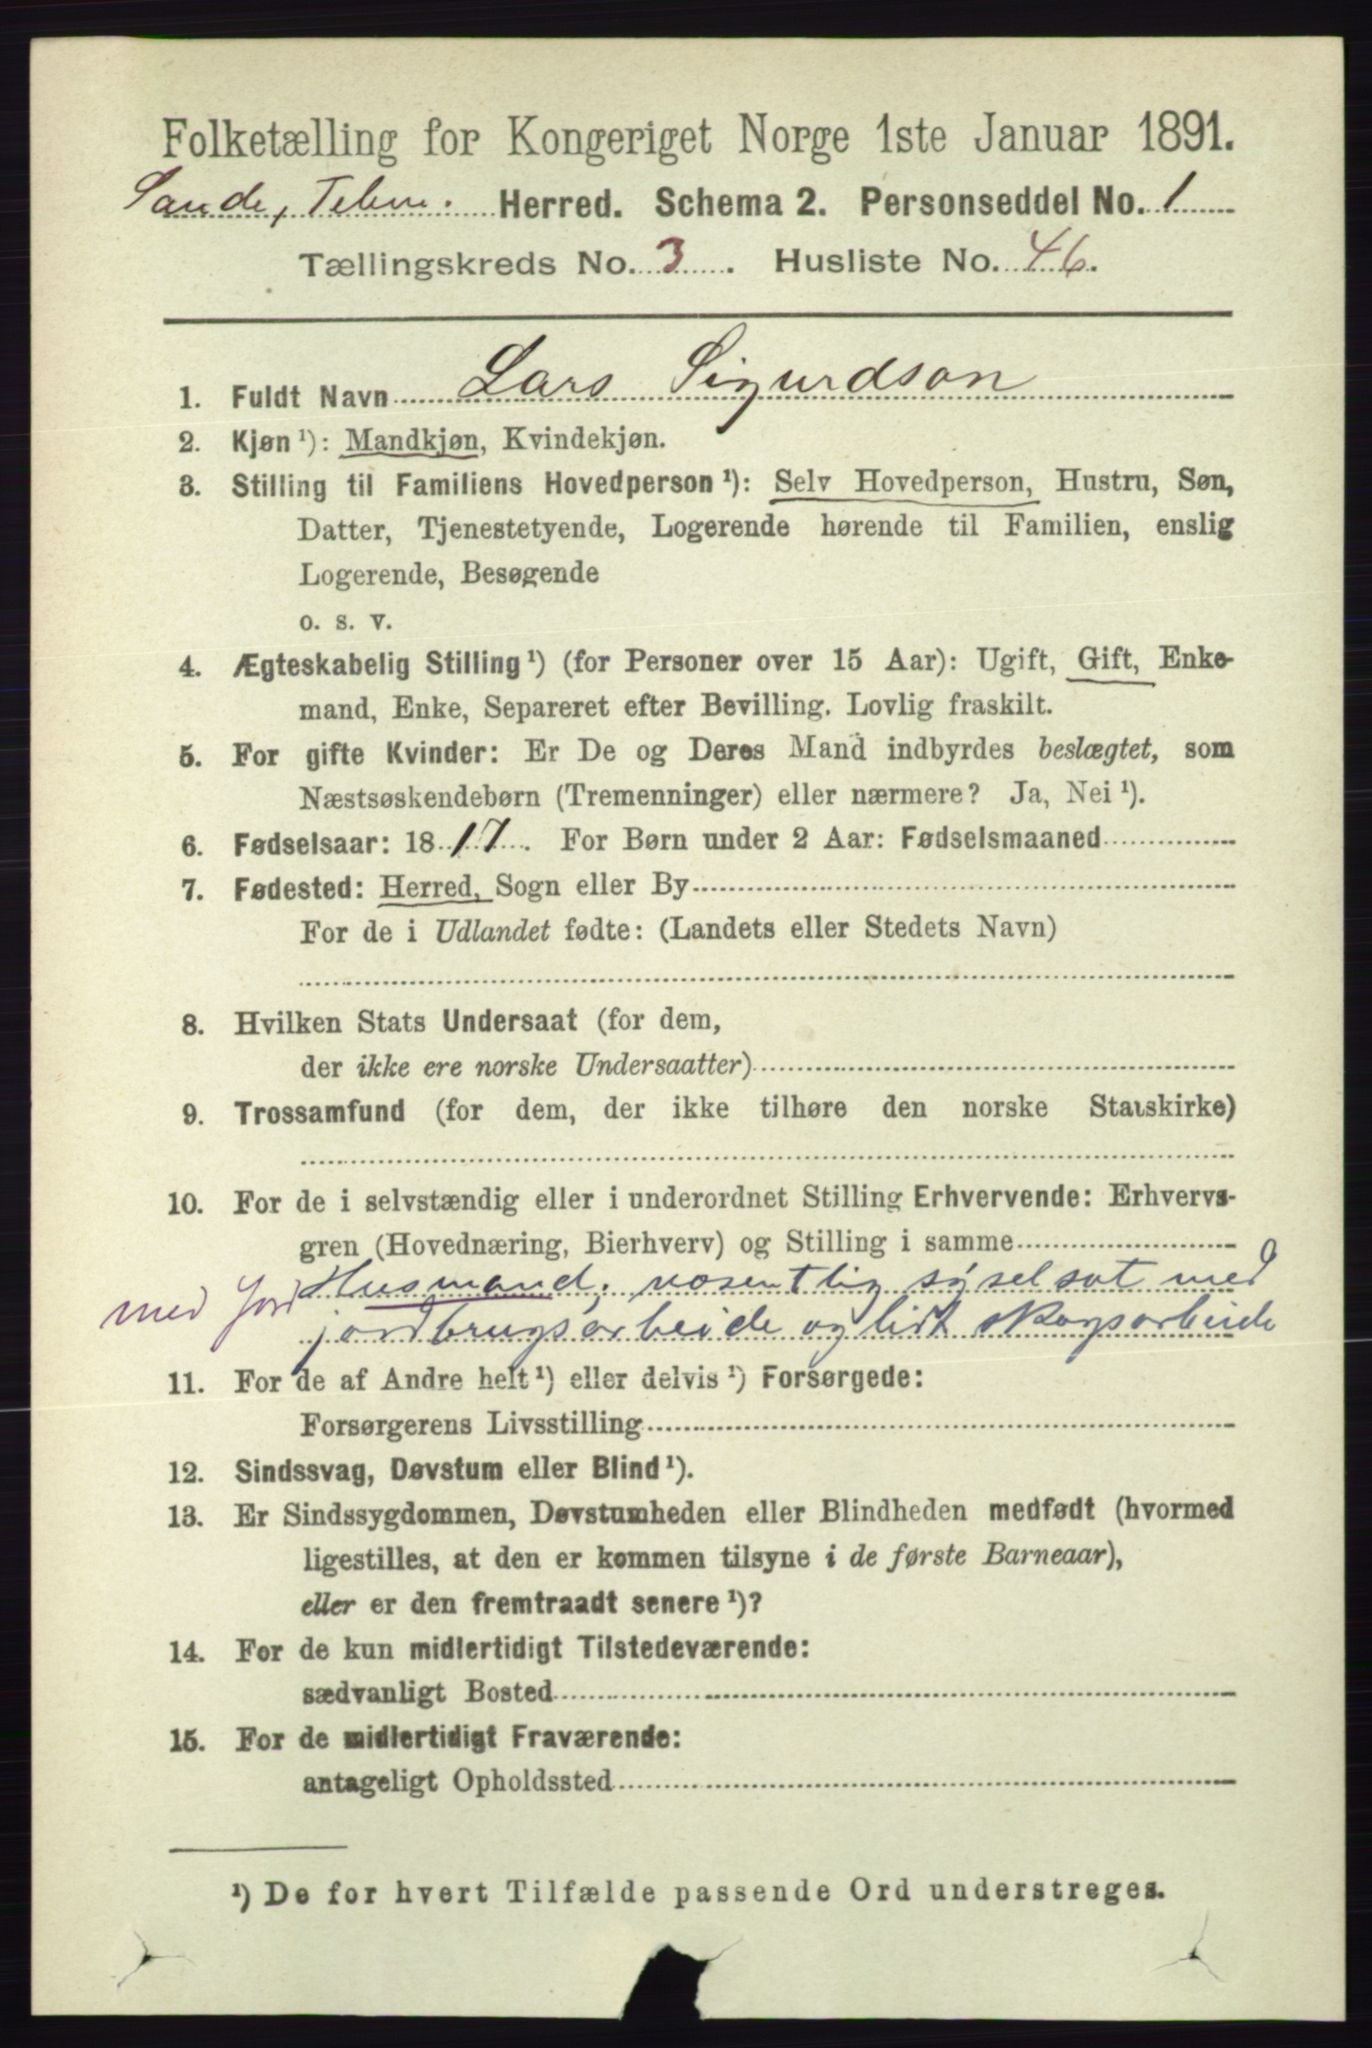 Folketælling for Kongeriget Norge 1ste Januar 1891.
Sande, Telem. Herred. Schema 2. Personseddel No. 1
Tællingskreds No. 3. Husliste No. 46.
1. Fuldt Navn Lars Sigurdson
2. Kjøn¹): Mandkjøn, Kvindekjøn.
3. Stilling til Familiens Hovedperson¹): Selv Hovedperson, Hustru, Søn,
Datter, Tjenestetyende, Logerende hørende til Familien, enslig
Logerende, Besøgende
o. s. v.
4. Ægteskabelig Stilling¹) (for Personer over 15 Aar): Ugift, Gift, Enke-
mand, Enke, Separeret efter Bevilling. Lovlig fraskilt.
5. For gifte Kvinder: Er De og Deres Mand indbyrdes beslægtet, som
Næstsøskendebørn (Tremenninger) eller nærmere? Ja, Nei¹).
6. Fødselsaar: 1817. For Børn under 2 Aar: Fødselsmaaned
7. Fødested: Herred, Sogn eller By
For de i Udlandet fødte: (Landets eller Stedets Navn)
8. Hvilken Stats Undersaat (for dem,
der ikke ere norske Undersaatter)
9. Trossamfund (for dem, der ikke tilhøre den norske Statskirke)
10. For de i selvstændig eller i underordnet Stilling Erhvervende: Erhvervs-
gren (Hovednæring, Bierhverv) og Stilling i samme
med Jord Husmand, væsentlig syselsat med
jordbrugsarbeide og lidt skogsarbeide
11. For de af Andre helt¹) eller delvis¹) Forsørgede:
Forsørgerens Livsstilling
12. Sindssvag, Døvstum eller Blind¹).
13. Er Sindssygdommen, Døvstumheden eller Blindheden medfødt (hvormed
ligestilles, at den er kommen tilsyne i de første Barneaar),
eller er den fremtraadt senere¹)?
14. For de kun midlertidigt Tilstedeværende:
sædvanligt Bosted
15. For de midlertidigt Fraværende:
antageligt Opholdssted
¹) De for hvert Tilfælde passende Ord understreges.